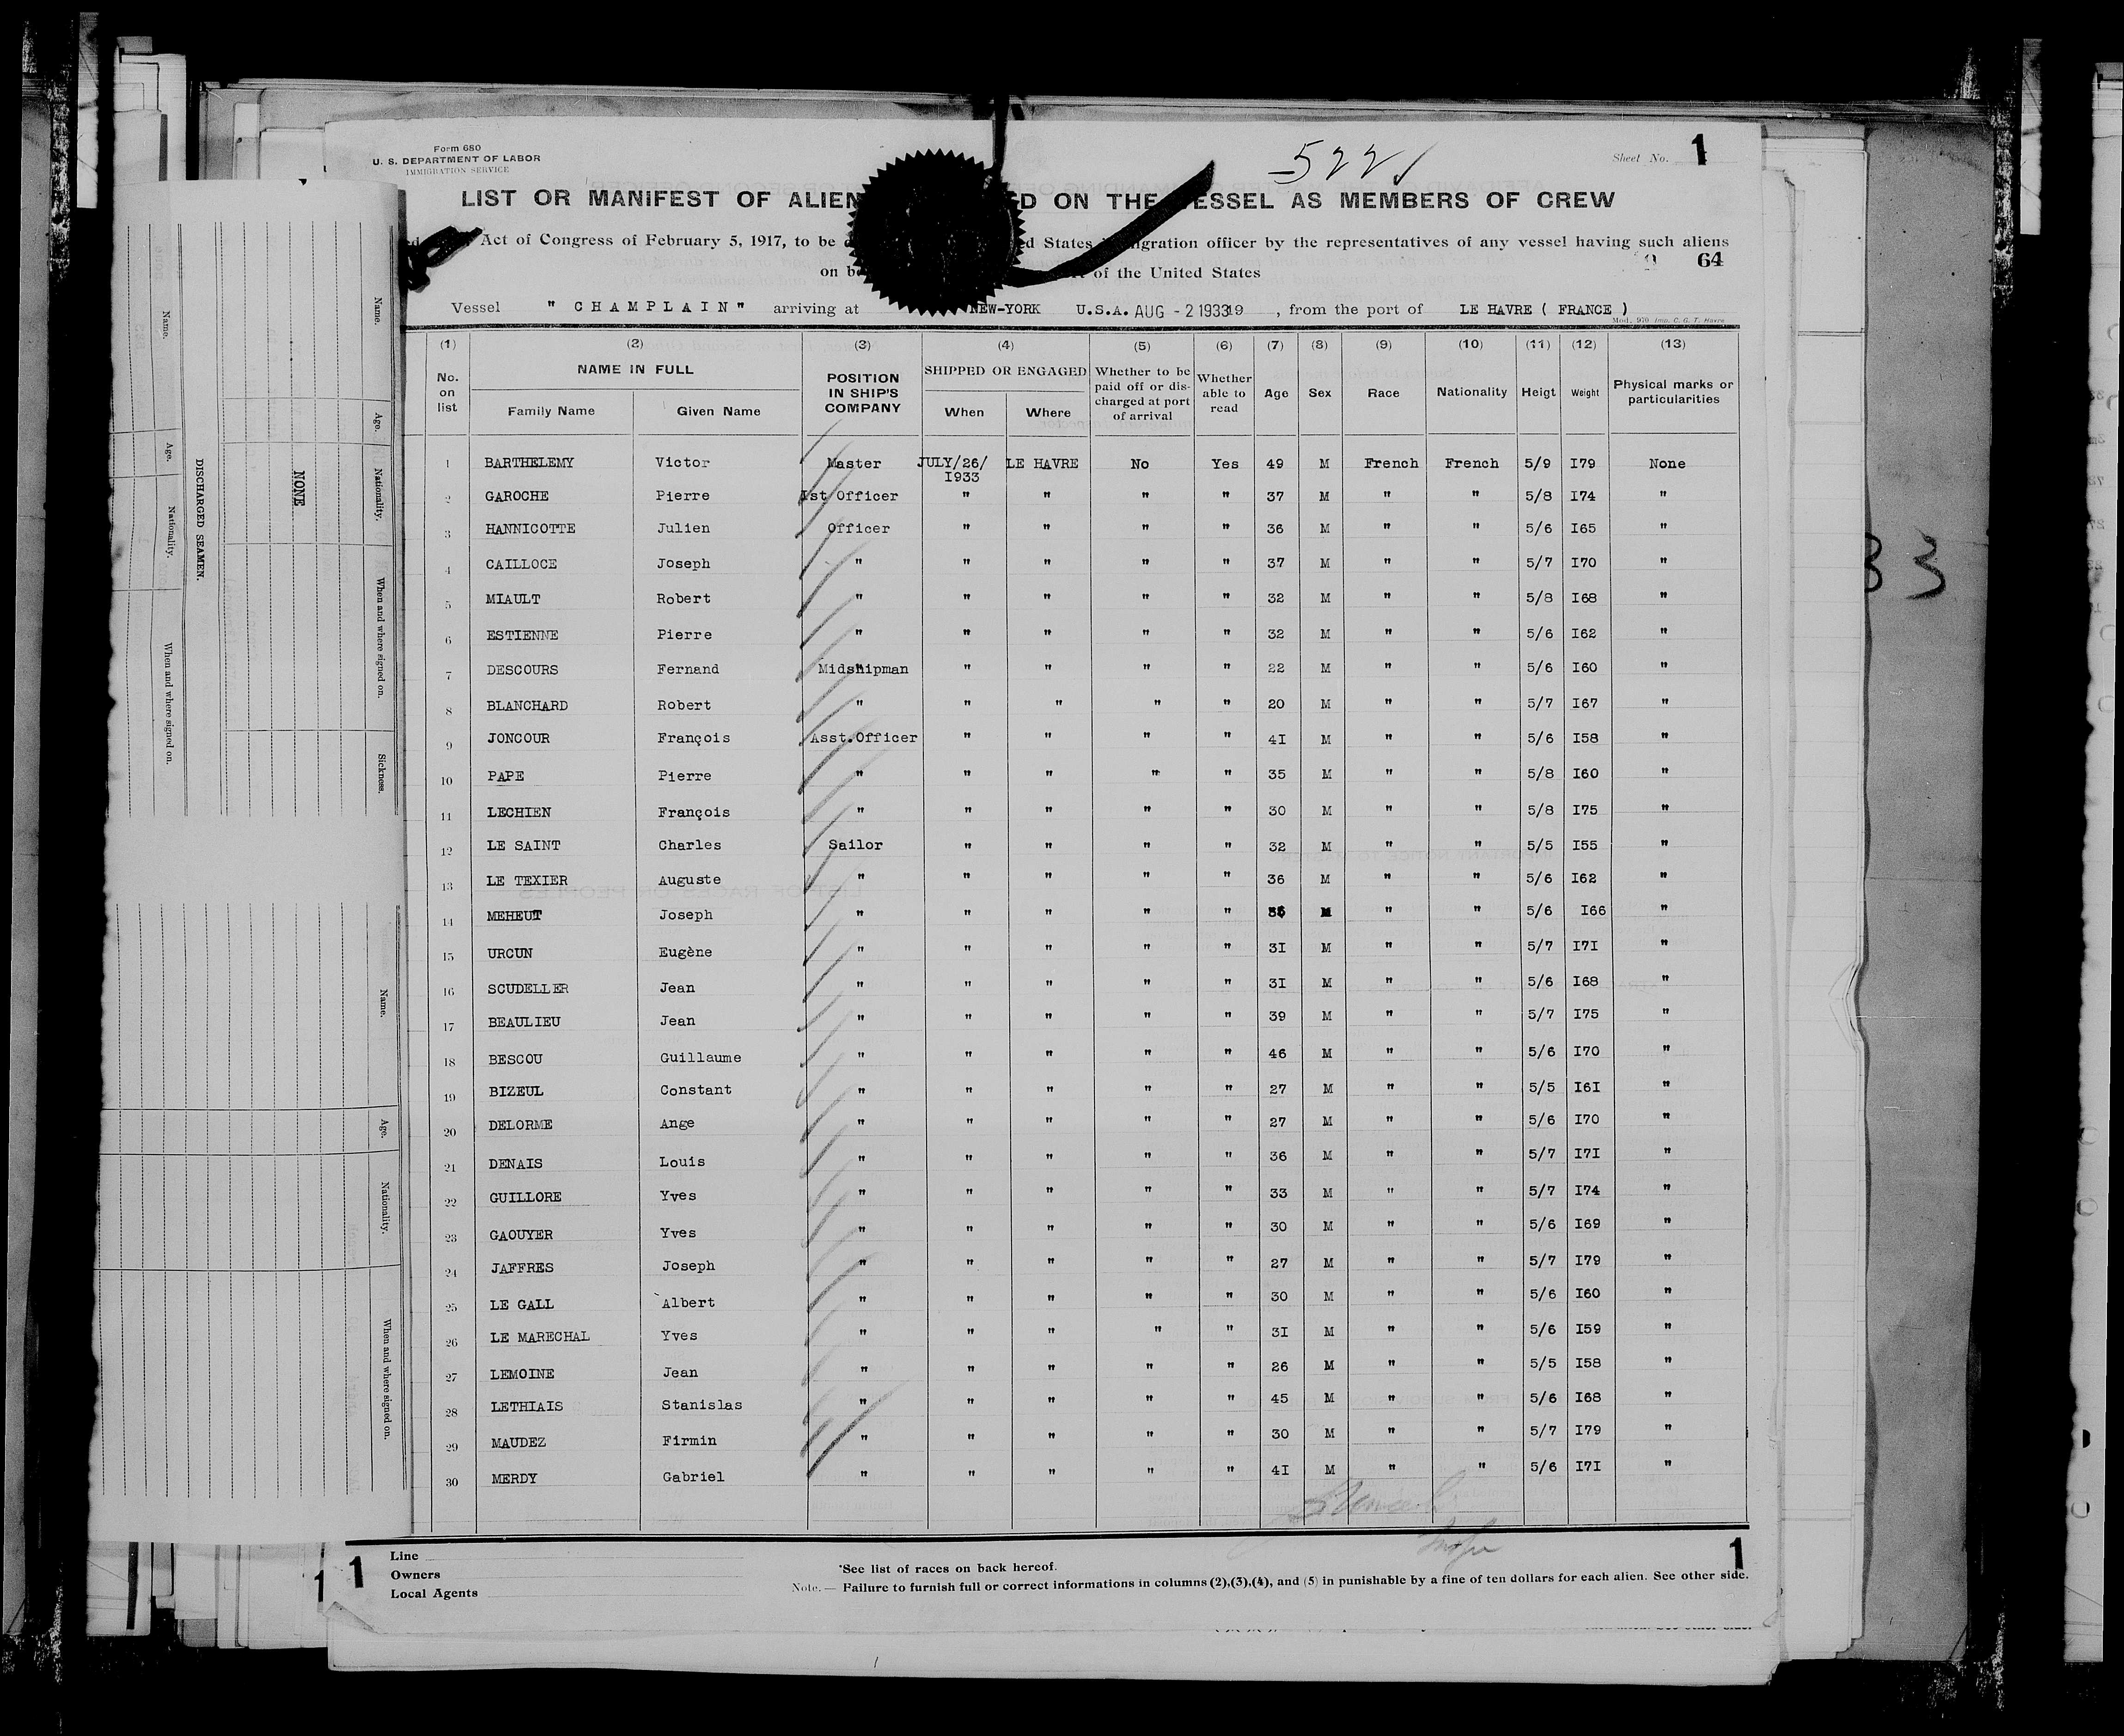 Form 680
U. S. DEPARTMENT OF LABOR
IMMIGRATION SERVICE
5221
Sheet No. 1
LIST OR MANIFEST OF ALIEN D ON THE ESSEL AS MEMBERS OF CREW
Act of Congress of February 5, 1917, to be ed States igration officer by the representatives of any vessel having such aliens
on b of the United States
64
Vessel " CHAMPLAIN " arriving at NEW-YORK U.S.A. AUG - 2 1933 19 , from the port of LE HAVRE ( FRANCE )
Mod. 970 Imp. C. G. T. Havre
(1) (2) (3) (4) (5) (6) (7) (8) (9) (10) (11) (12) (13)
No. on list NAME IN FULL Family Name Given Name POSITION IN SHIP'S COMPANY SHIPPED OR ENGAGED When Where Whether to be paid off or discharged at port of arrival Whether able to read Age Sex Race Nationality Heigt Weight Physical marks or particularities
1 BARTHELEMY Victor Master JULY/26/ I933 LE HAVRE No Yes 49 M French French 5/9 I79 None
2 GAROCHE Pierre Ist Officer " " " " 37 M " " 5/8 I74 "
3 HANNICOTTE Julien Officer " " " " 36 M " " 5/6 I65 "
4 CAILLOCE Joseph " " " " " 37 M " " 5/7 I70 "
5 MIAULT Robert " " " " " 32 M " " 5/8 I68 "
6 ESTIENNE Pierre " " " " " 32 M " " 5/6 I62 "
7 DESCOURS Fernand Midshipman " " " " 22 M " " 5/6 I60 "
8 BLANCHARD Robert " " " " " 20 M " " 5/7 I67 "
9 JONCOUR François Asst.Officer " " " " 4I M " " 5/6 I58 "
10 PAPE Pierre " " " " " 35 M " " 5/8 I60 "
11 LECHIEN François " " " " " 30 M " " 5/8 I75 "
12 LE SAINT Charles Sailor " " " " 32 M " " 5/5 I55 "
13 LE TEXIER Auguste " " " " " 36 M " " 5/6 I62 "
14 MEHEUT Joseph " " " " " M " " 5/6 I66 "
15 URCUN Eugène " " " " " 3I M " " 5/7 I7I "
16 SCUDELLER Jean " " " " " 3I M " " 5/6 I68 "
17 BEAULIEU Jean " " " " " 39 M " " 5/7 I75 "
18 BESCOU Guillaume " " " " " 46 M " " 5/6 I70 "
19 BIZEUL Constant " " " " " 27 M " " 5/5 I6I "
20 DELORME Ange " " " " " 27 M " " 5/6 I70 "
21 DENAIS Louis " " " " " 36 M " " 5/7 I7I "
22 GUILLORE Yves " " " " " 33 M " " 5/7 I74 "
23 GAOUYER Yves " " " " " 30 M " " 5/6 I69 "
24 JAFFRES Joseph " " " " " 27 M " " 5/7 I79 "
25 LE GALL Albert " " " " " 30 M " " 5/6 I60 "
26 LE MARECHAL Yves " " " " " 3I M " " 5/6 I59 "
27 LEMOINE Jean " " " " " 26 M " " 5/5 I58 "
28 LETHIAIS Stanislas " " " " " 45 M " " 5/6 I68 "
29 MAUDEZ Firmin " " " " " 30 M " " 5/7 I79 "
30 MERDY Gabriel " " " " " 4I M " " 5/6 I7I "
1 Line
Owners
Local Agents
*See list of races on back hereof.
Note.— Failure to furnish full or correct informations in columns (2),(3),(4), and (5) in punishable by a fine of ten dollars for each alien. See other side.
1
1
Name. Age. Nationality. When and where signed on. Sickness.
NONE
DISCHARGED SEAMEN.
Name. Age. Nationality. When and where signed on.
Name. Age. Nationality. When and where signed on.
33